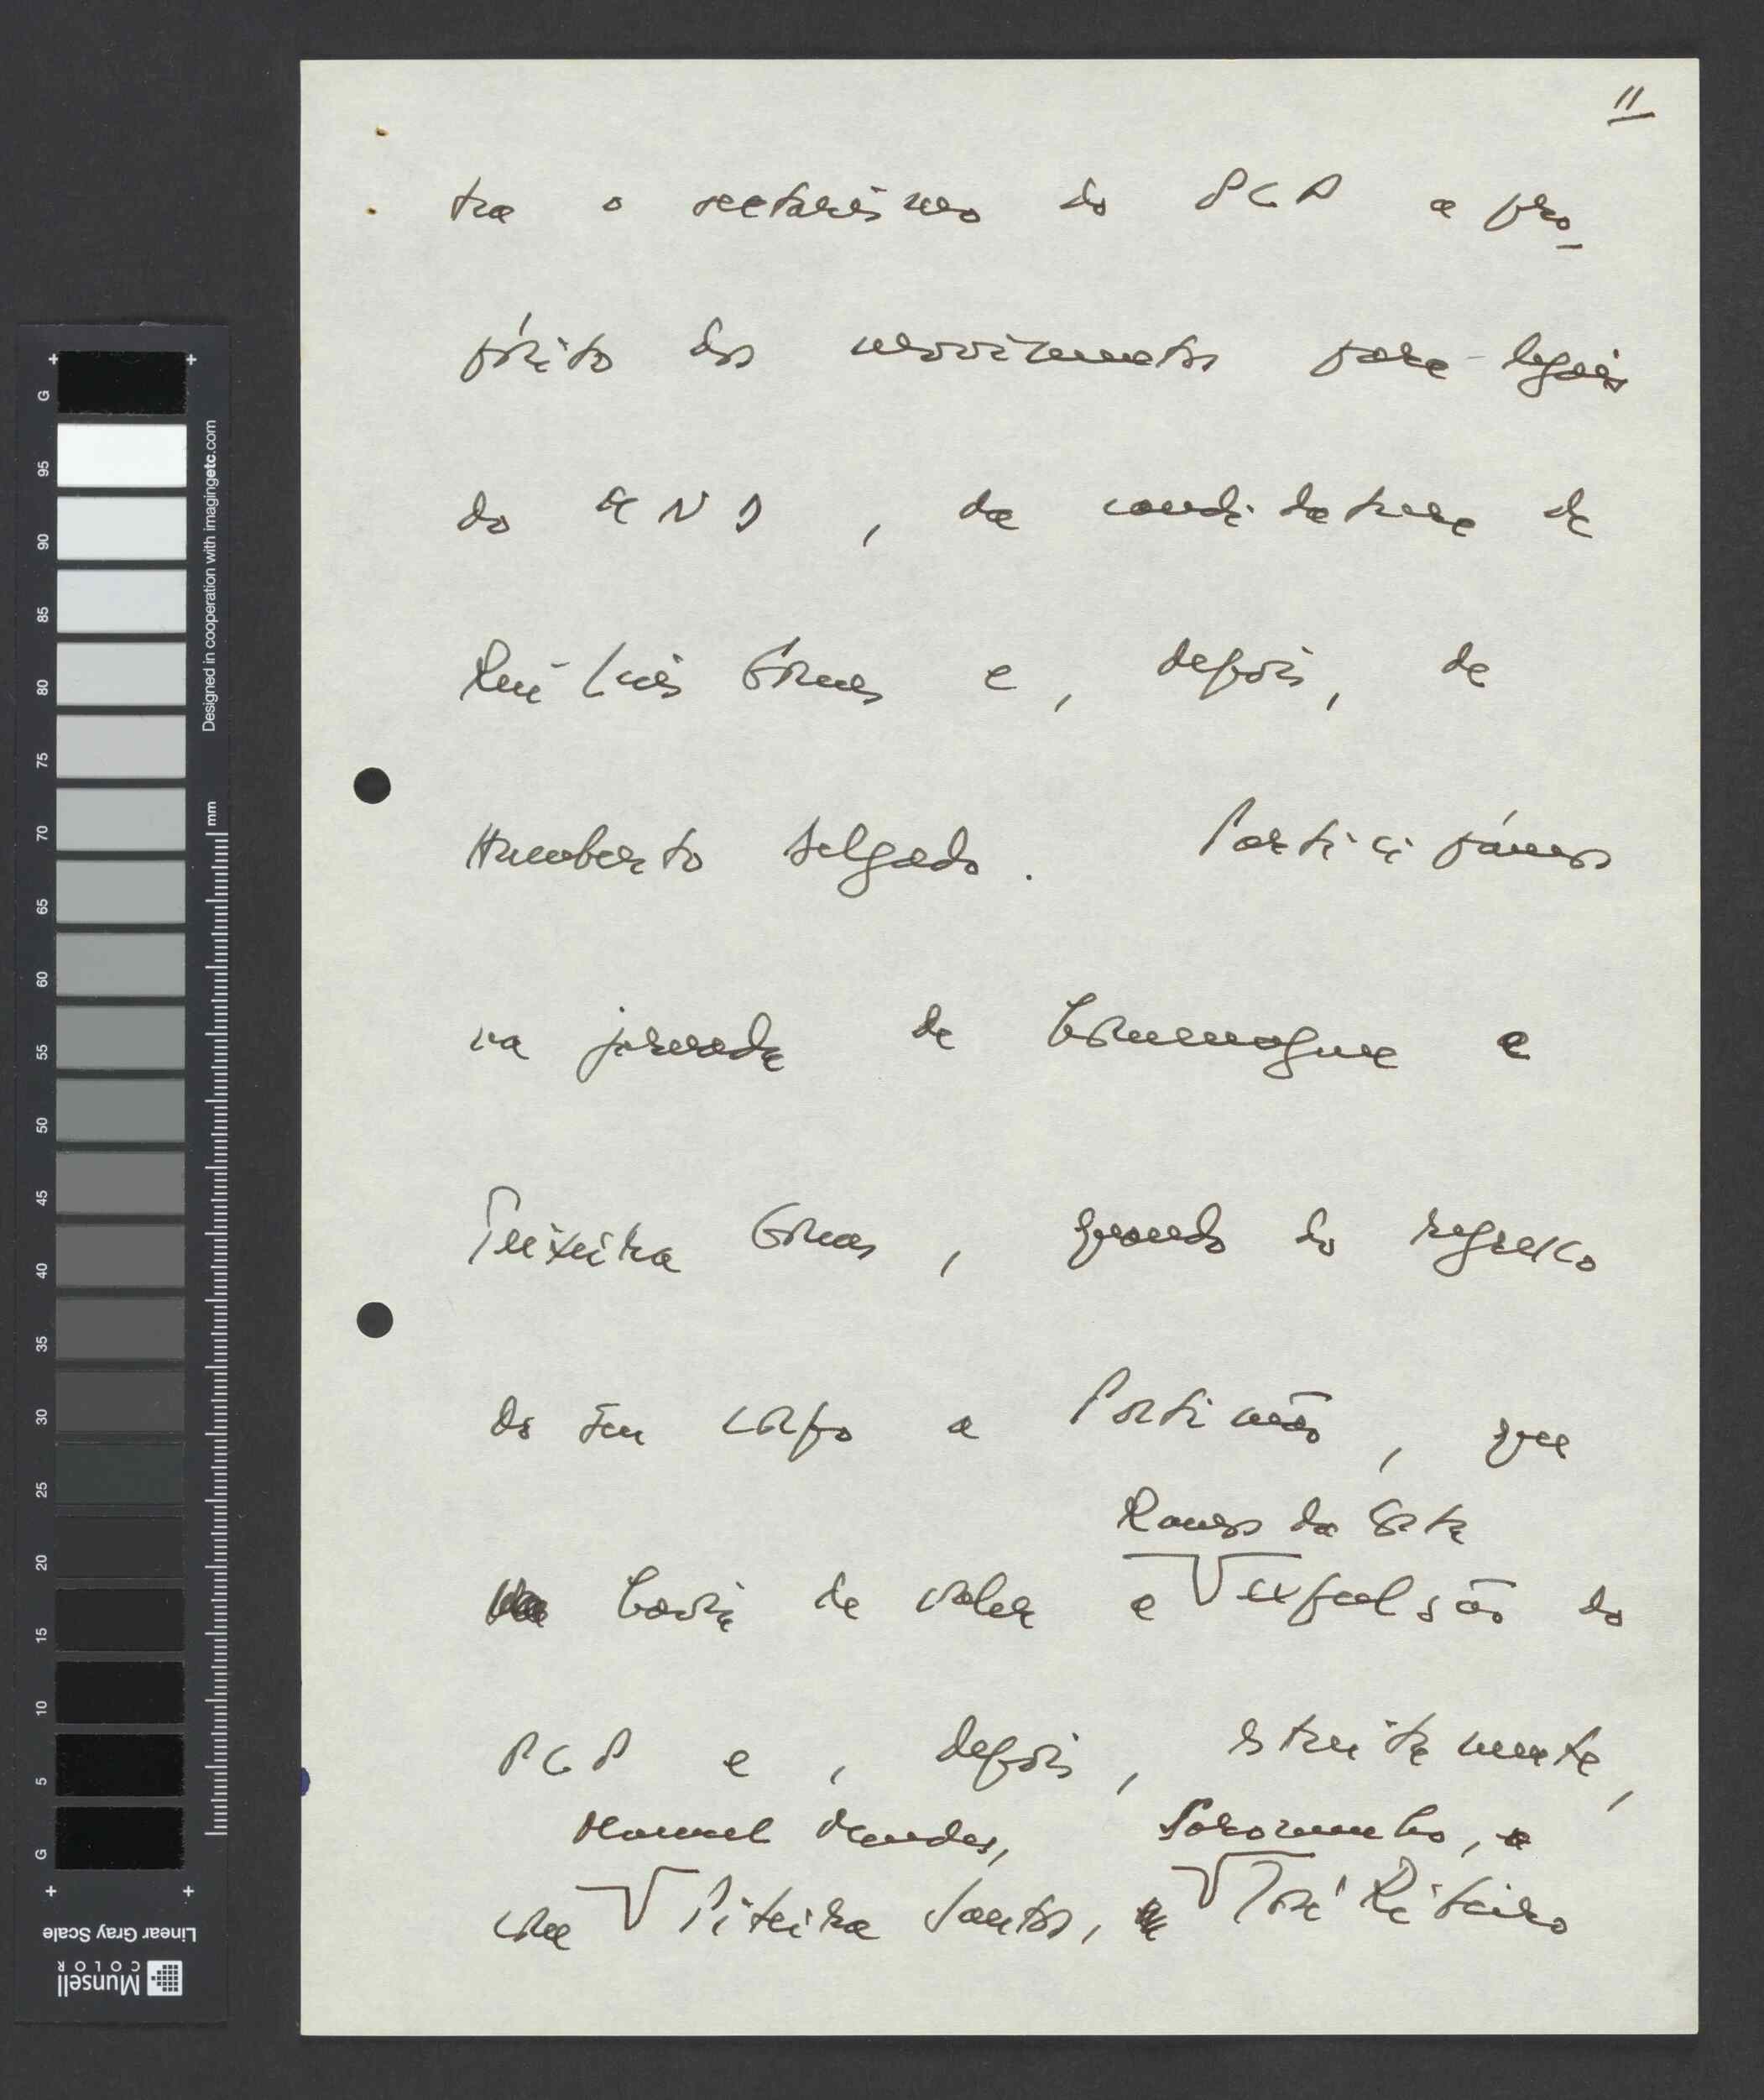 11
tra o sectarismo do PCP a pro-
pósito dos movimentos para-legais
do MND, da candidatura de
Rui Luís Gomes e, depois, de
Humberto Delgado. Participámos
na jornada de homenagem a
Teixeira Gomes, quando do regresso
do seu corpo a Portimão, que
havia de valer a
Ramos da Costa
expulsão do
PCP e, depois, estreitamente,
Manuel Mendes, Soromenho, e
com Piteira Santos, José Ribeiro
G 95 90 85 80 75 70 65 60 55 50 45 40 35 30 25 20 15 10 5 G
Designed in cooperation with imagingetc.com
mm
Linear Gray Scale
Munsell
COLOR